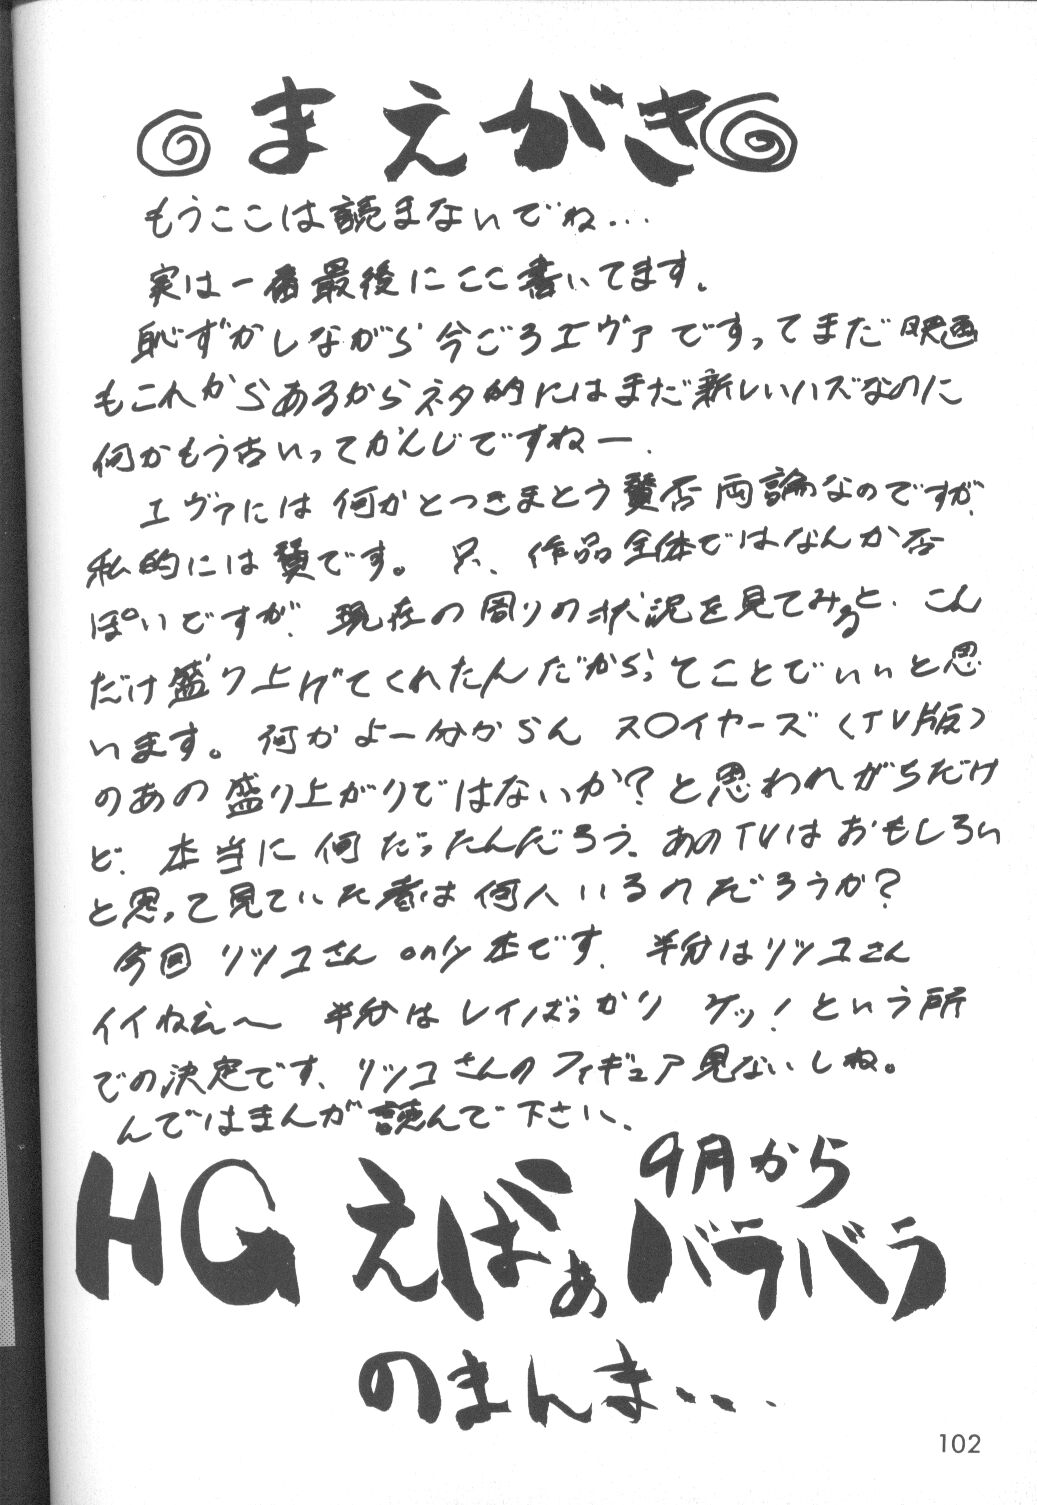 まえがき
もうここは読まないでね...
実は一番最後にここ書いてます。
恥ずかしながら今ごろエヴァですってまだ映画
もこれからあるからネタ的にはまだ新しいハズなのに
何かもう古いってかんじですねー.
エヴァには何かとつきまとう賛否両論なのですが、
私的には賛です。只、作品全体ではなんか否
ぽいですが、現在の周りの状況を見てみると、こん
だけ盛り上げてくれたんだからってことでいいと思
います。何かよー分からんス〇イヤーズ(TV版)
のあの盛り上がりではないか?と思われがちだけ
ど、本当に何だったんだろう、あのTVはおもしろい
と思って見ていた者は何人いるのだろうか?
今回リツコさんonly本です、半分はリツコさん
イイねえ〜半分はレイばっかりケッ!という所
での決定です、リツコさんのフィギュア見ないしね。
んではまんが読んで下さい、
9月から
HGえばぁバラバラ
のまんま...
102